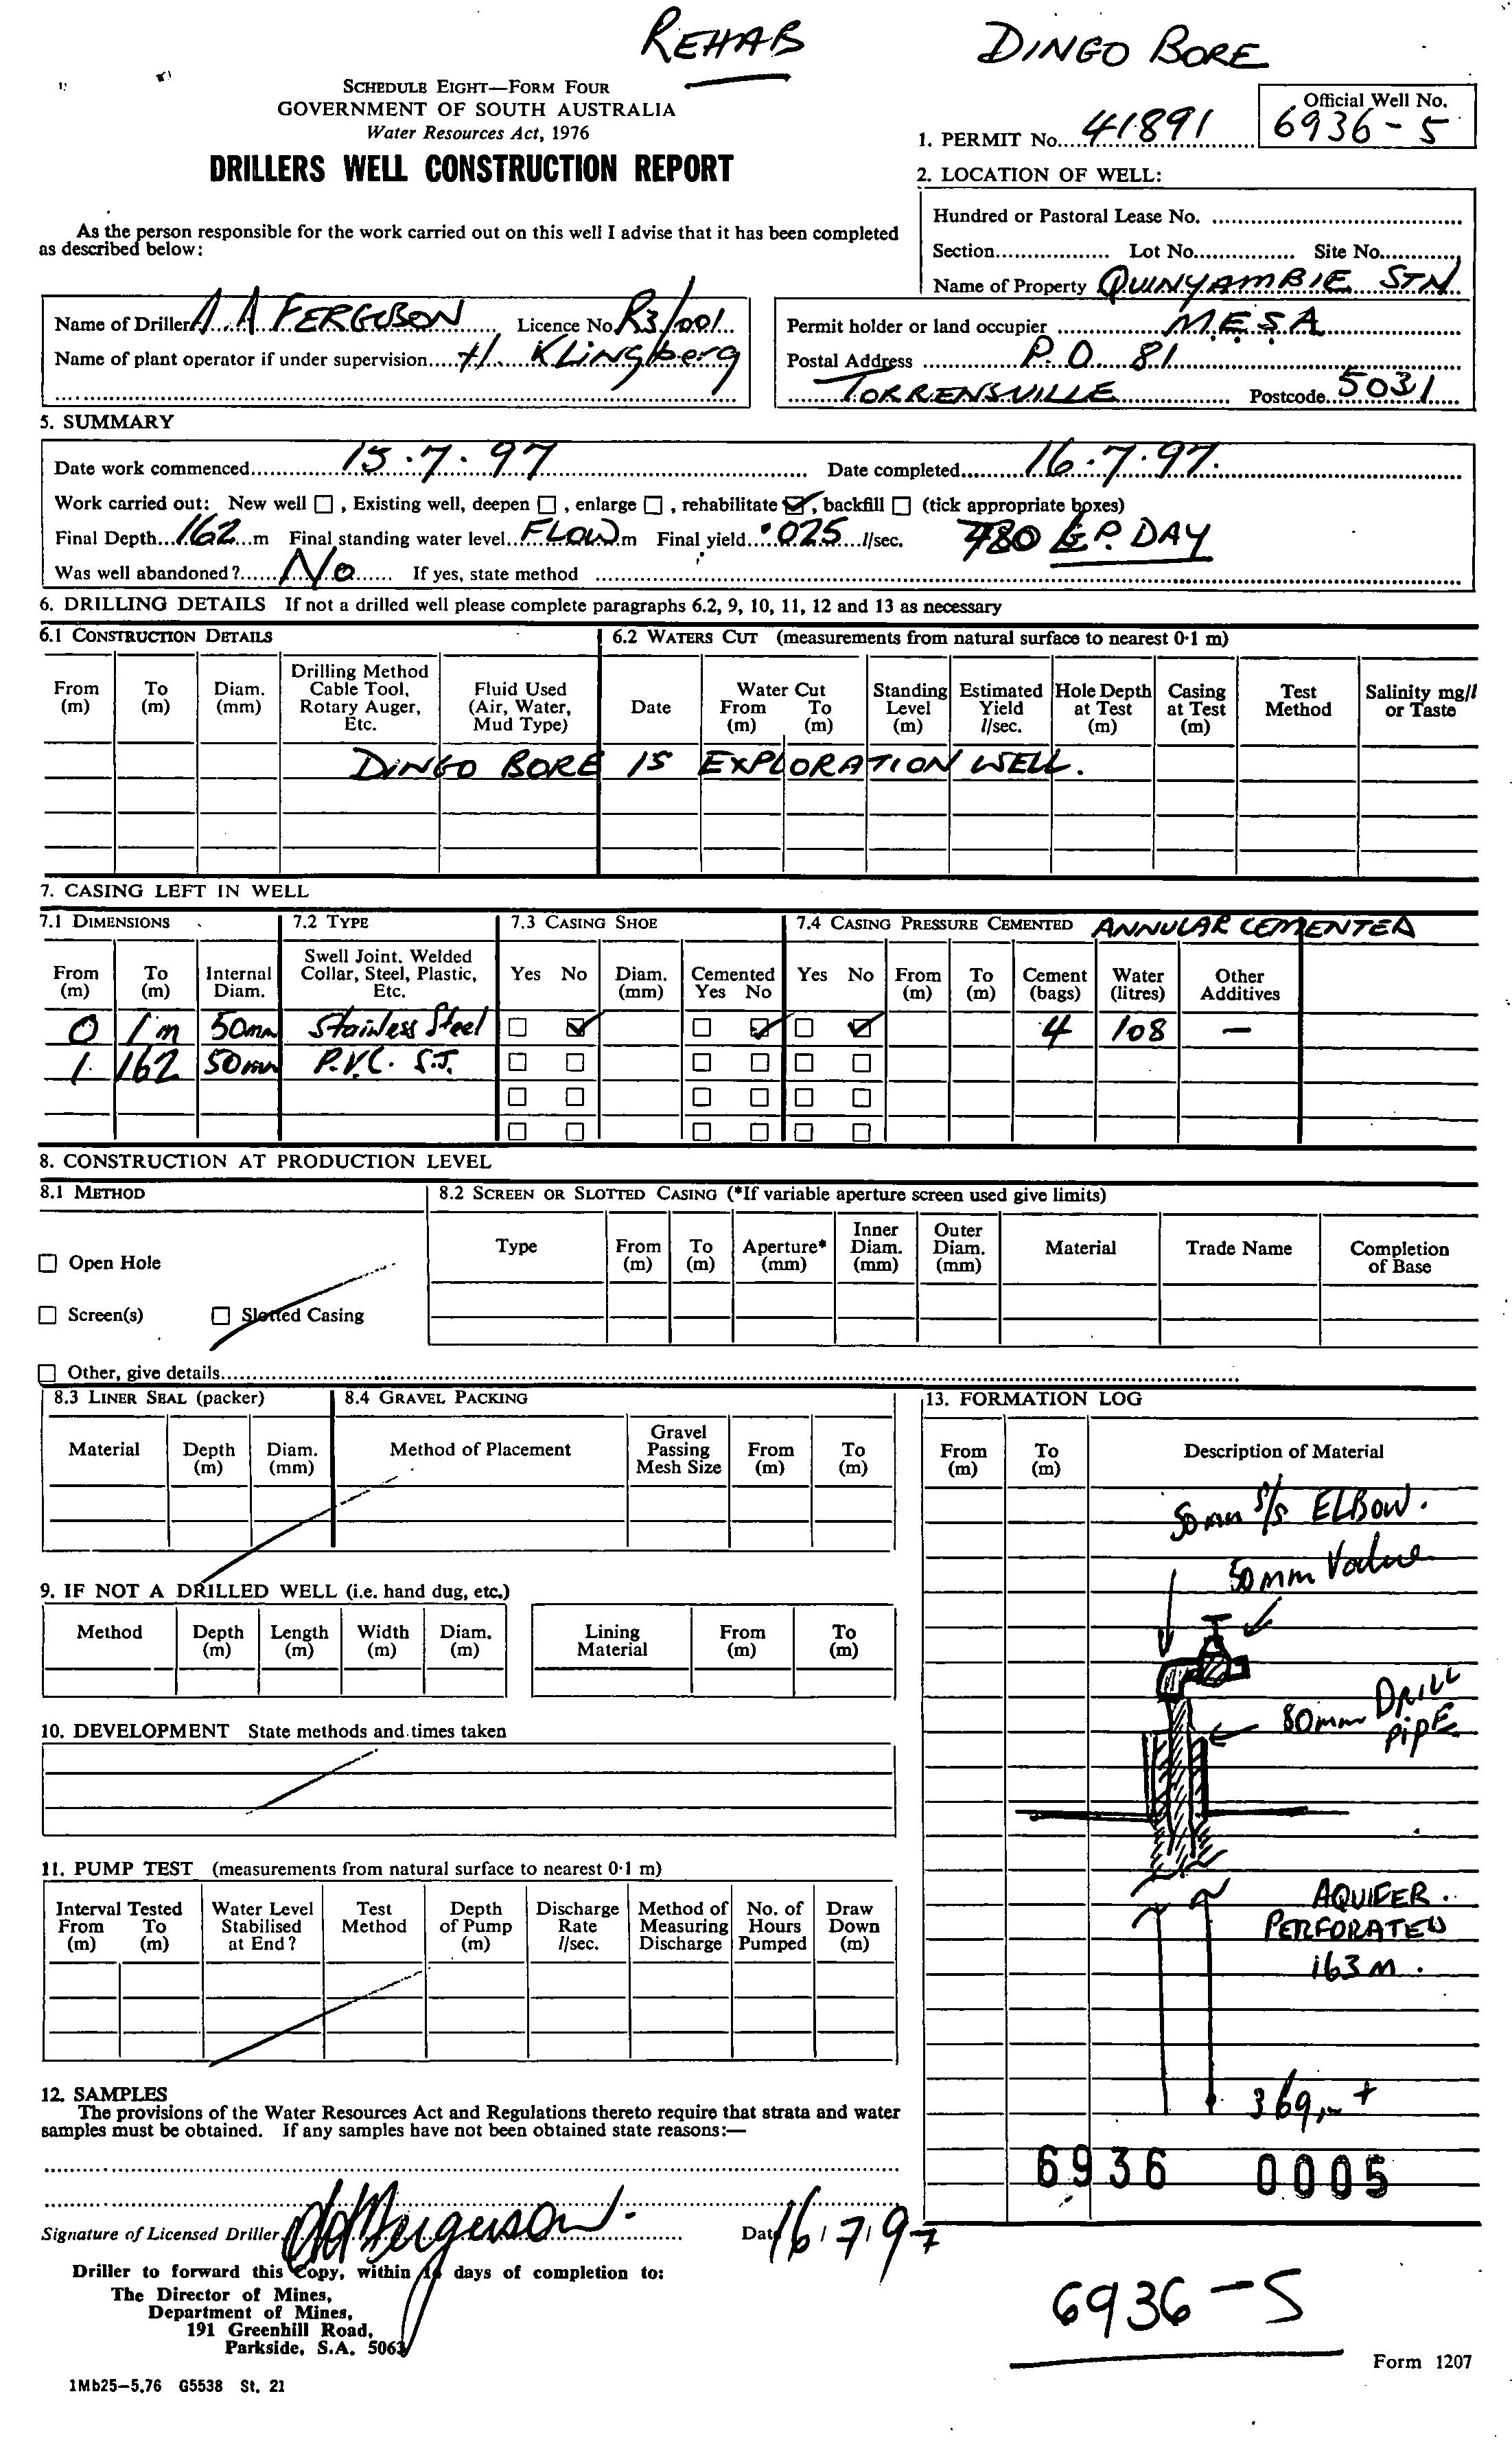 REHAB
DINGO BORE
SCHEDULE EIGHT—FORM FOUR
GOVERNMENT OF SOUTH AUSTRALIA
Water Resources Act, 1976
DRILLERS WELL CONSTRUCTION REPORT
1. PERMIT No....41891
Official Well No.
6936-5
2. LOCATION OF WELL:
Hundred or Pastoral Lease No.
Section Lot No. Site No.
Name of Property QUINYAMBIE STN
As the person responsible for the work carried out on this well I advise that it has been completed
as described below:
Name of Driller A A FERGUSON Licence No. R3/001
Name of plant operator if under supervision H KLINGLBERG
Permit holder or land occupier M.E.S.A
Postal Address P.O. 81
TORRENSVILLE Postcode 5031
5. SUMMARY
Date work commenced 15.7.97 Date completed 16.7.97.
Work carried out: New well ☐, Existing well, deepen ☐, enlarge ☐, rehabilitate ☑, backfill ☐ (tick appropriate boxes)
Final Depth 162 m Final standing water level FLOW m Final yield .025 l/sec. 480 G.P. DAY
Was well abandoned? No If yes, state method
6. DRILLING DETAILS If not a drilled well please complete paragraphs 6.2, 9, 10, 11, 12 and 13 as necessary
6.1 CONSTRUCTION DETAILS
6.2 WATERS CUT (measurements from natural surface to nearest 0·1 m)
From (m) To (m) Diam. (mm) Drilling Method Cable Tool, Rotary Auger, Etc. Fluid Used (Air, Water, Mud Type) Date Water Cut From (m) To (m) Standing Level (m) Estimated Yield l/sec. Hole Depth at Test (m) Casing at Test (m) Test Method Salinity mg/l or Taste
DINGO BORE IS EXPLORATION WELL.
7. CASING LEFT IN WELL
7.1 DIMENSIONS 7.2 TYPE 7.3 CASING SHOE 7.4 CASING PRESSURE CEMENTED ANNULAR CEMENTED
From (m) To (m) Internal Diam. Swell Joint, Welded Collar, Steel, Plastic, Etc. Yes No Diam. (mm) Cemented Yes No Yes No From (m) To (m) Cement (bags) Water (litres) Other Additives
0 1m 50mm Stainless Steel ☐ ☑ ☐ ☑ ☐ ☑ 4 108 —
1. 162 50mm P.V.C. S.J.
8. CONSTRUCTION AT PRODUCTION LEVEL
8.1 METHOD
8.2 SCREEN OR SLOTTED CASING (*If variable aperture screen used give limits)
Type From (m) To (m) Aperture* (mm) Inner Diam. (mm) Outer Diam. (mm) Material Trade Name Completion of Base
☐ Open Hole
☐ Screen(s) ☐ Slotted Casing
☐ Other, give details
8.3 LINER SEAL (packer)
8.4 GRAVEL PACKING
Material Depth (m) Diam. (mm) Method of Placement Gravel Passing Mesh Size From (m) To (m)
9. IF NOT A DRILLED WELL (i.e. hand dug, etc.)
Method Depth (m) Length (m) Width (m) Diam. (m) Lining Material From (m) To (m)
10. DEVELOPMENT State methods and times taken
11. PUMP TEST (measurements from natural surface to nearest 0·1 m)
Interval Tested From (m) To (m) Water Level Stabilised at End? Test Method Depth of Pump (m) Discharge Rate l/sec. Method of Measuring Discharge No. of Hours Pumped Draw Down (m)
12. SAMPLES
The provisions of the Water Resources Act and Regulations thereto require that strata and water
samples must be obtained. If any samples have not been obtained state reasons:—
13. FORMATION LOG
From (m) To (m) Description of Material
50mm S/S ELBOW.
50mm Valve
80mm DRILL
PIPE
AQUIFER
PERFORATED
163 M.
369m +
6936 0005
Signature of Licensed Driller Date 16/7/97
Driller to forward this Copy, within 14 days of completion to:
The Director of Mines,
Department of Mines,
191 Greenhill Road,
Parkside, S.A. 5063
6936-5
Form 1207
1Mb25–5.76 G5538 St. 21